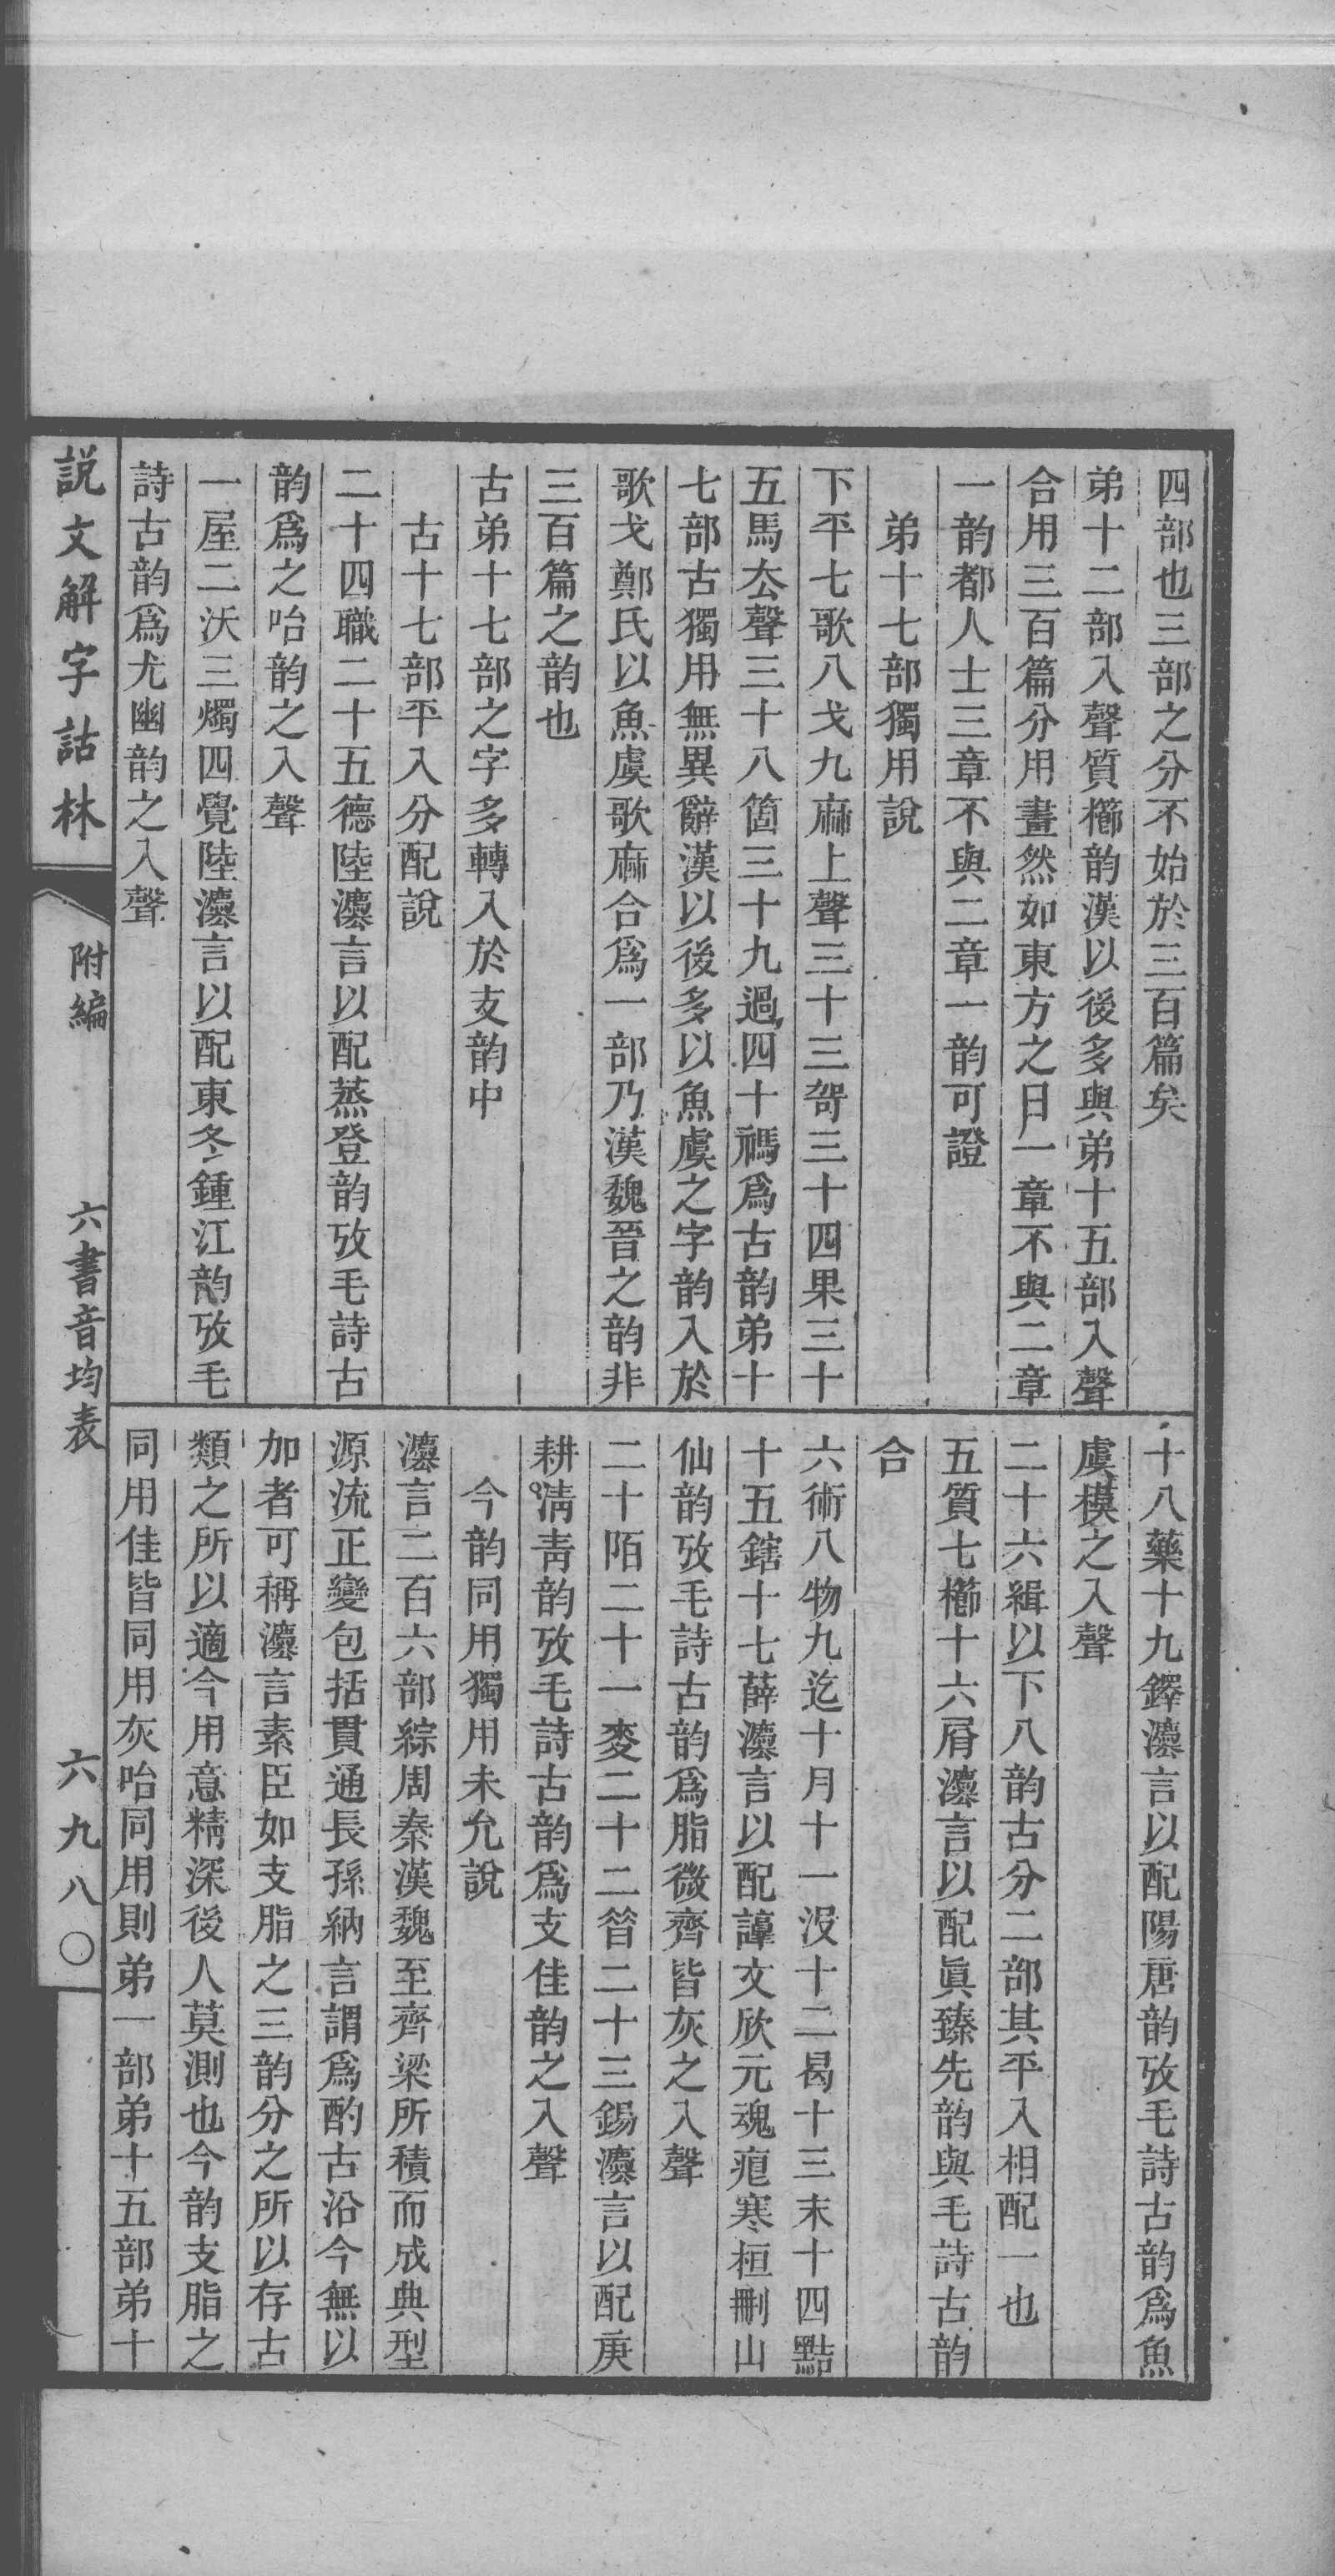 四部也三部之分不始於三百篇矣
弟十二部入聲質櫛韵漢以後多與弟十五部入聲
合用三百篇分用畫然如東方之日一章不與二章
一韵都人士三章不與二章一韵可證
弟十七部獨用說
下平七歌八戈九麻上聲三十三哿三十四果三十
五馬厺聲三十八箇三十九過四十禡爲古韵弟十
七部古獨用無異辭漢以後多以魚虞之字韵入於
歌戈鄭氏以魚虞歌麻合爲一部乃漢魏晉之韵非
三百篇之韵也
古弟十七部之字多轉入於支韵中
古十七部平入分配說
二十四職二十五德陸灋言以配蒸登韵攷毛詩古
韵爲之咍韵之入聲
一屋二沃三燭四覺陸灋言以配東冬鍾江韵攷毛
詩古韵爲尤幽韵之入聲
十八藥十九鐸灋言以配陽唐韵攷毛詩古韵爲魚
虞模之入聲
二十六緝以下八韵古分二部其平入相配一也
五質七櫛十六屑灋言以配眞臻先韵與毛詩古韵
合
六術八物九迄十月十一没十二曷十三末十四黠
十五鎋十七薛灋言以配諄文欣元魂痕寒桓刪山
仙韵攷毛詩古韵爲脂微齊皆灰之入聲
二十陌二十一麥二十二昔二十三錫灋言以配庚
耕淸靑韵攷毛詩古韵爲支佳韵之入聲
今韵同用獨用未允說
灋言二百六部綜周秦漢魏至齊梁所積而成典型
源流正變包括貫通長孫納言謂爲酌古沿今無以
加者可稱灋言素臣如支脂之三韵分之所以存古
類之所以適今用意精深後人莫測也今韵支脂之
同用佳皆同用灰咍同用則弟一部弟十五部弟十
說文解字詁林
附編
六書音均表
六九八〇